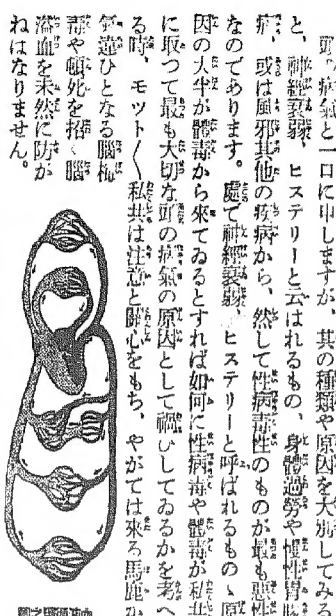 頭の病氣と一口に申しますが、其の種類や原因を大別してみる
と、神經衰弱、ヒステリーと云はれるもの、身體過勞や慢性胃
病、或は風邪其他の疾病から、然して性病毒性のものが最も惡性
なのであります。處で神經衰弱、ヒステリーと呼ばれるものゝ原
因の大半が體毒から來てゐるとすれば如何に性病毒や體毒が私共
に取つて最も大切な頭の病氣の原因として禍ひしてゐるかを考へ
る時、モット〳〵私共は注意と關心をもち、やがては來る馬鹿か
氣違ひとなる腦梅
毒や頓死を招く腦
溢血を未然に防が
ねはなりません。